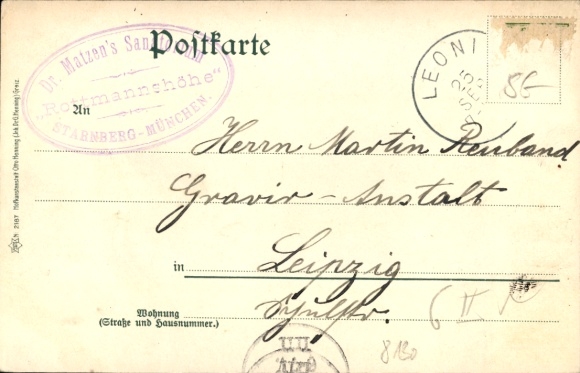 Postkarte
Dr. Matzen's Sanatorium
"Rottmannshöhe"
STARNBERG-MÜNCHEN.
LEONI
25
SEE
86-
An
Herrn Martin Reuband
Gravir-Anstalt
in Leipzig
Wohnung
(Straße und Hausnummer.)
Schulstr.
6 II
8130
No. 2187